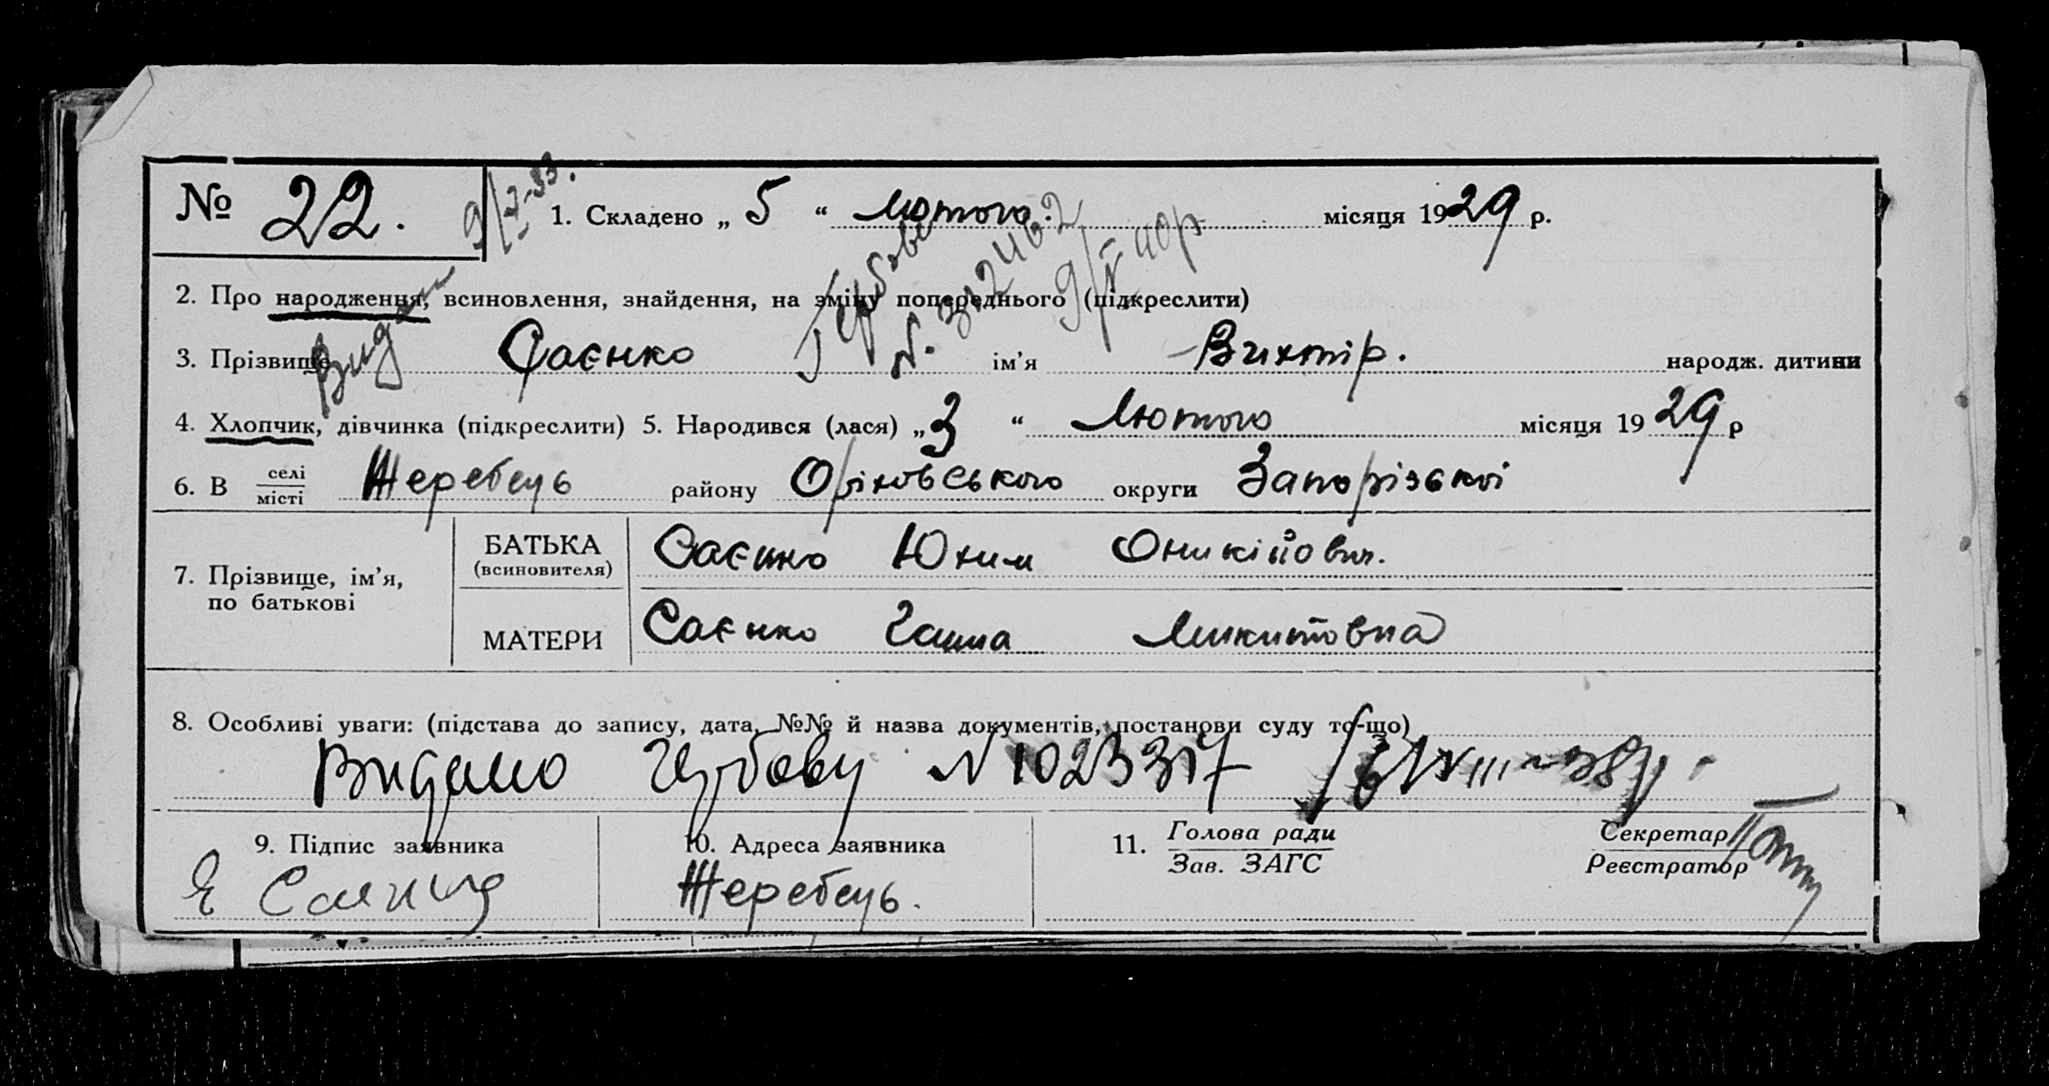 № 22.
1. Складено „ 5 “ Лютого. місяця 1929 р.
2. Про народження, всиновлення, знайдення, на зміну попереднього (підкреслити)
Видан 9/I-33.
Гербове
N. 312462
9/IV 40р
3. Прізвище Саєнко ім’я Вихтір. народж. дитини
4. Хлопчик, дівчинка (підкреслити) 5. Народився (лася) „ 3 “ Лютого місяця 1929 р
6. В селі / місті Жеребець району Оріховського округи Запорізької
7. Прізвище, ім’я, по батькові
БАТЬКА (всиновителя) Саєнко Юхим Оникійович.
МАТЕРИ Саєнко Ганна Микитовна
8. Особливі уваги: (підстава до запису, дата, №№ й назва документів, постанови суду то-що)
Видано Гербову N 1023317
9. Підпис заявника
Е Саєнко
10. Адреса заявника
Жеребець.
11. Голова ради / Зав. ЗАГС
Секретар / Реєстратор